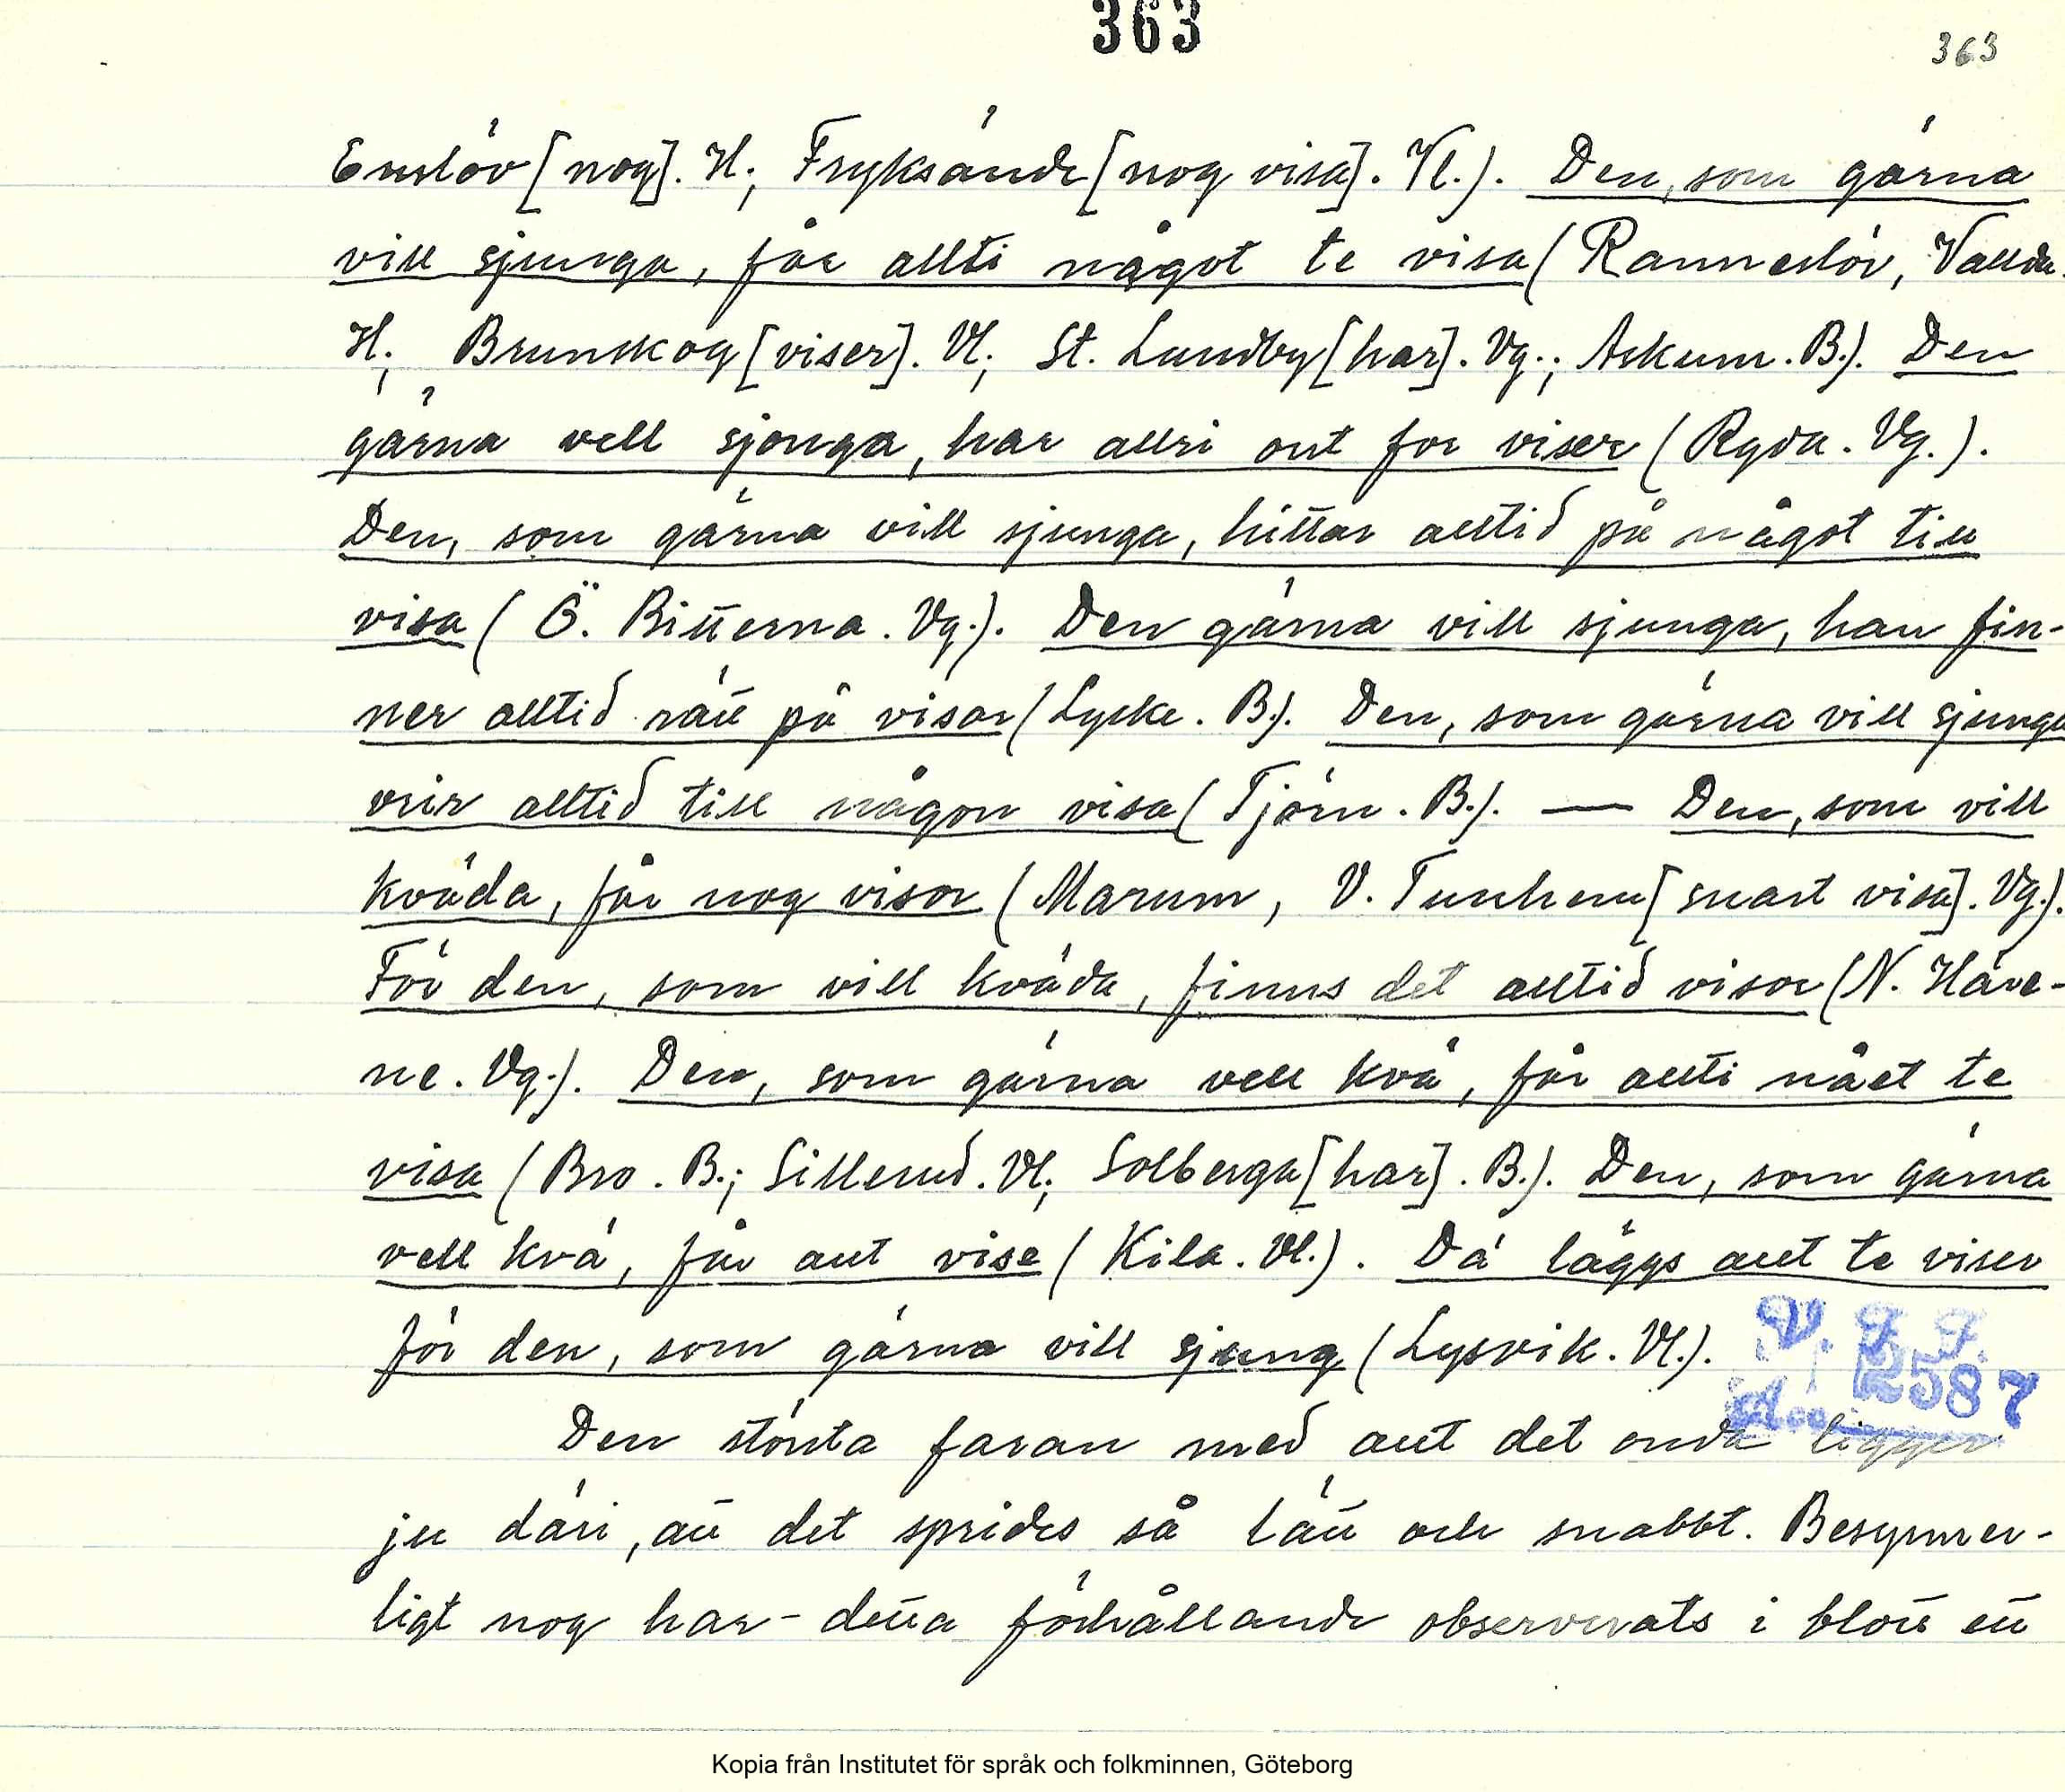 363
363
Enslöv [nog]. H.; Fryksände [nog visa]. Vl.). Den, som gärna
vill sjunga, får allti något te visa (Ranneslöv, Vallda.
H.; Brunskog [viser]. Vl.; St. Lundby [har]. Vg.; Askum. B.). Den
gärna vell sjonga, har allri ont for viser (Ryda. Vg.).
Den, som gärna vill sjunga, hittar alltid på något till
visa (Ö. Bitterna. Vg.). Den gärna vill sjunga, han fin-
ner alltid rätt på visor (Lycke. B.). Den, som gärna vill sjunga
vrir alltid till någon visa (Tjörn. B.). — Den, som vill
kväda, får nog visor (Marum, V. Tunhem [snart visa]. Vg.).
För den, som vill kväda, finns det alltid visor (N. Häre-
ne. Vg.). Den, som gärna vell kvä, får allti nået te
visa (Bro. B.; Sillerud. Vl.; Solberga [har]. B.). Den, som gärna
vell kvä, får allt vise (Kila. Vl.). Dä läggs allt te viser
för den, som gärna vill sjung (Lysvik. Vl.).
V. F. F.
2587
Acc
Den största faran med allt det onda ligger
ju däri, att det sprides så lätt och snabbt. Besynner-
ligt nog har detta förhållande observerats i blott ett
Kopia från Institutet för språk och folkminnen, Göteborg